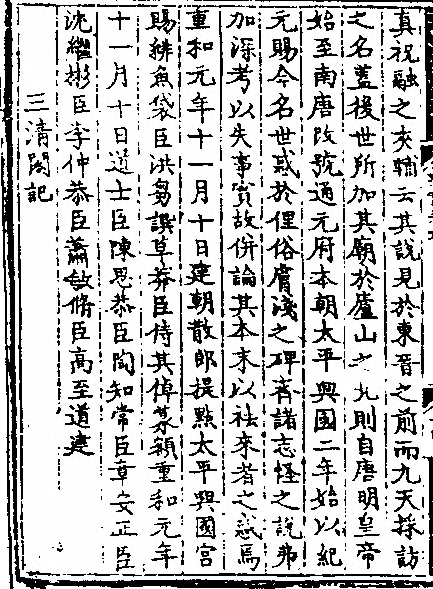 真祝融之夾輔云其說見於東晋之前而九天採訪
之名蓋後世所加其廟於廬山之九則自唐明皇帝
始至南唐改號通元府本朝太平興國二年始以紀
元賜今名世惑於俚俗膚淺之碑齊諸志怪之說弗
加深考以失事實故併論其本末以祛來者之惑焉
重和元年十一月十日建朝散郎提點太平興國宮
賜緋魚袋臣洪芻譔草莽臣侍其倬篆額重和元年
十一月十日道士臣陳思恭臣陶知常臣章安正臣
沈繼彬臣李仲恭臣蕭敏脩臣高至道建
三清閣記